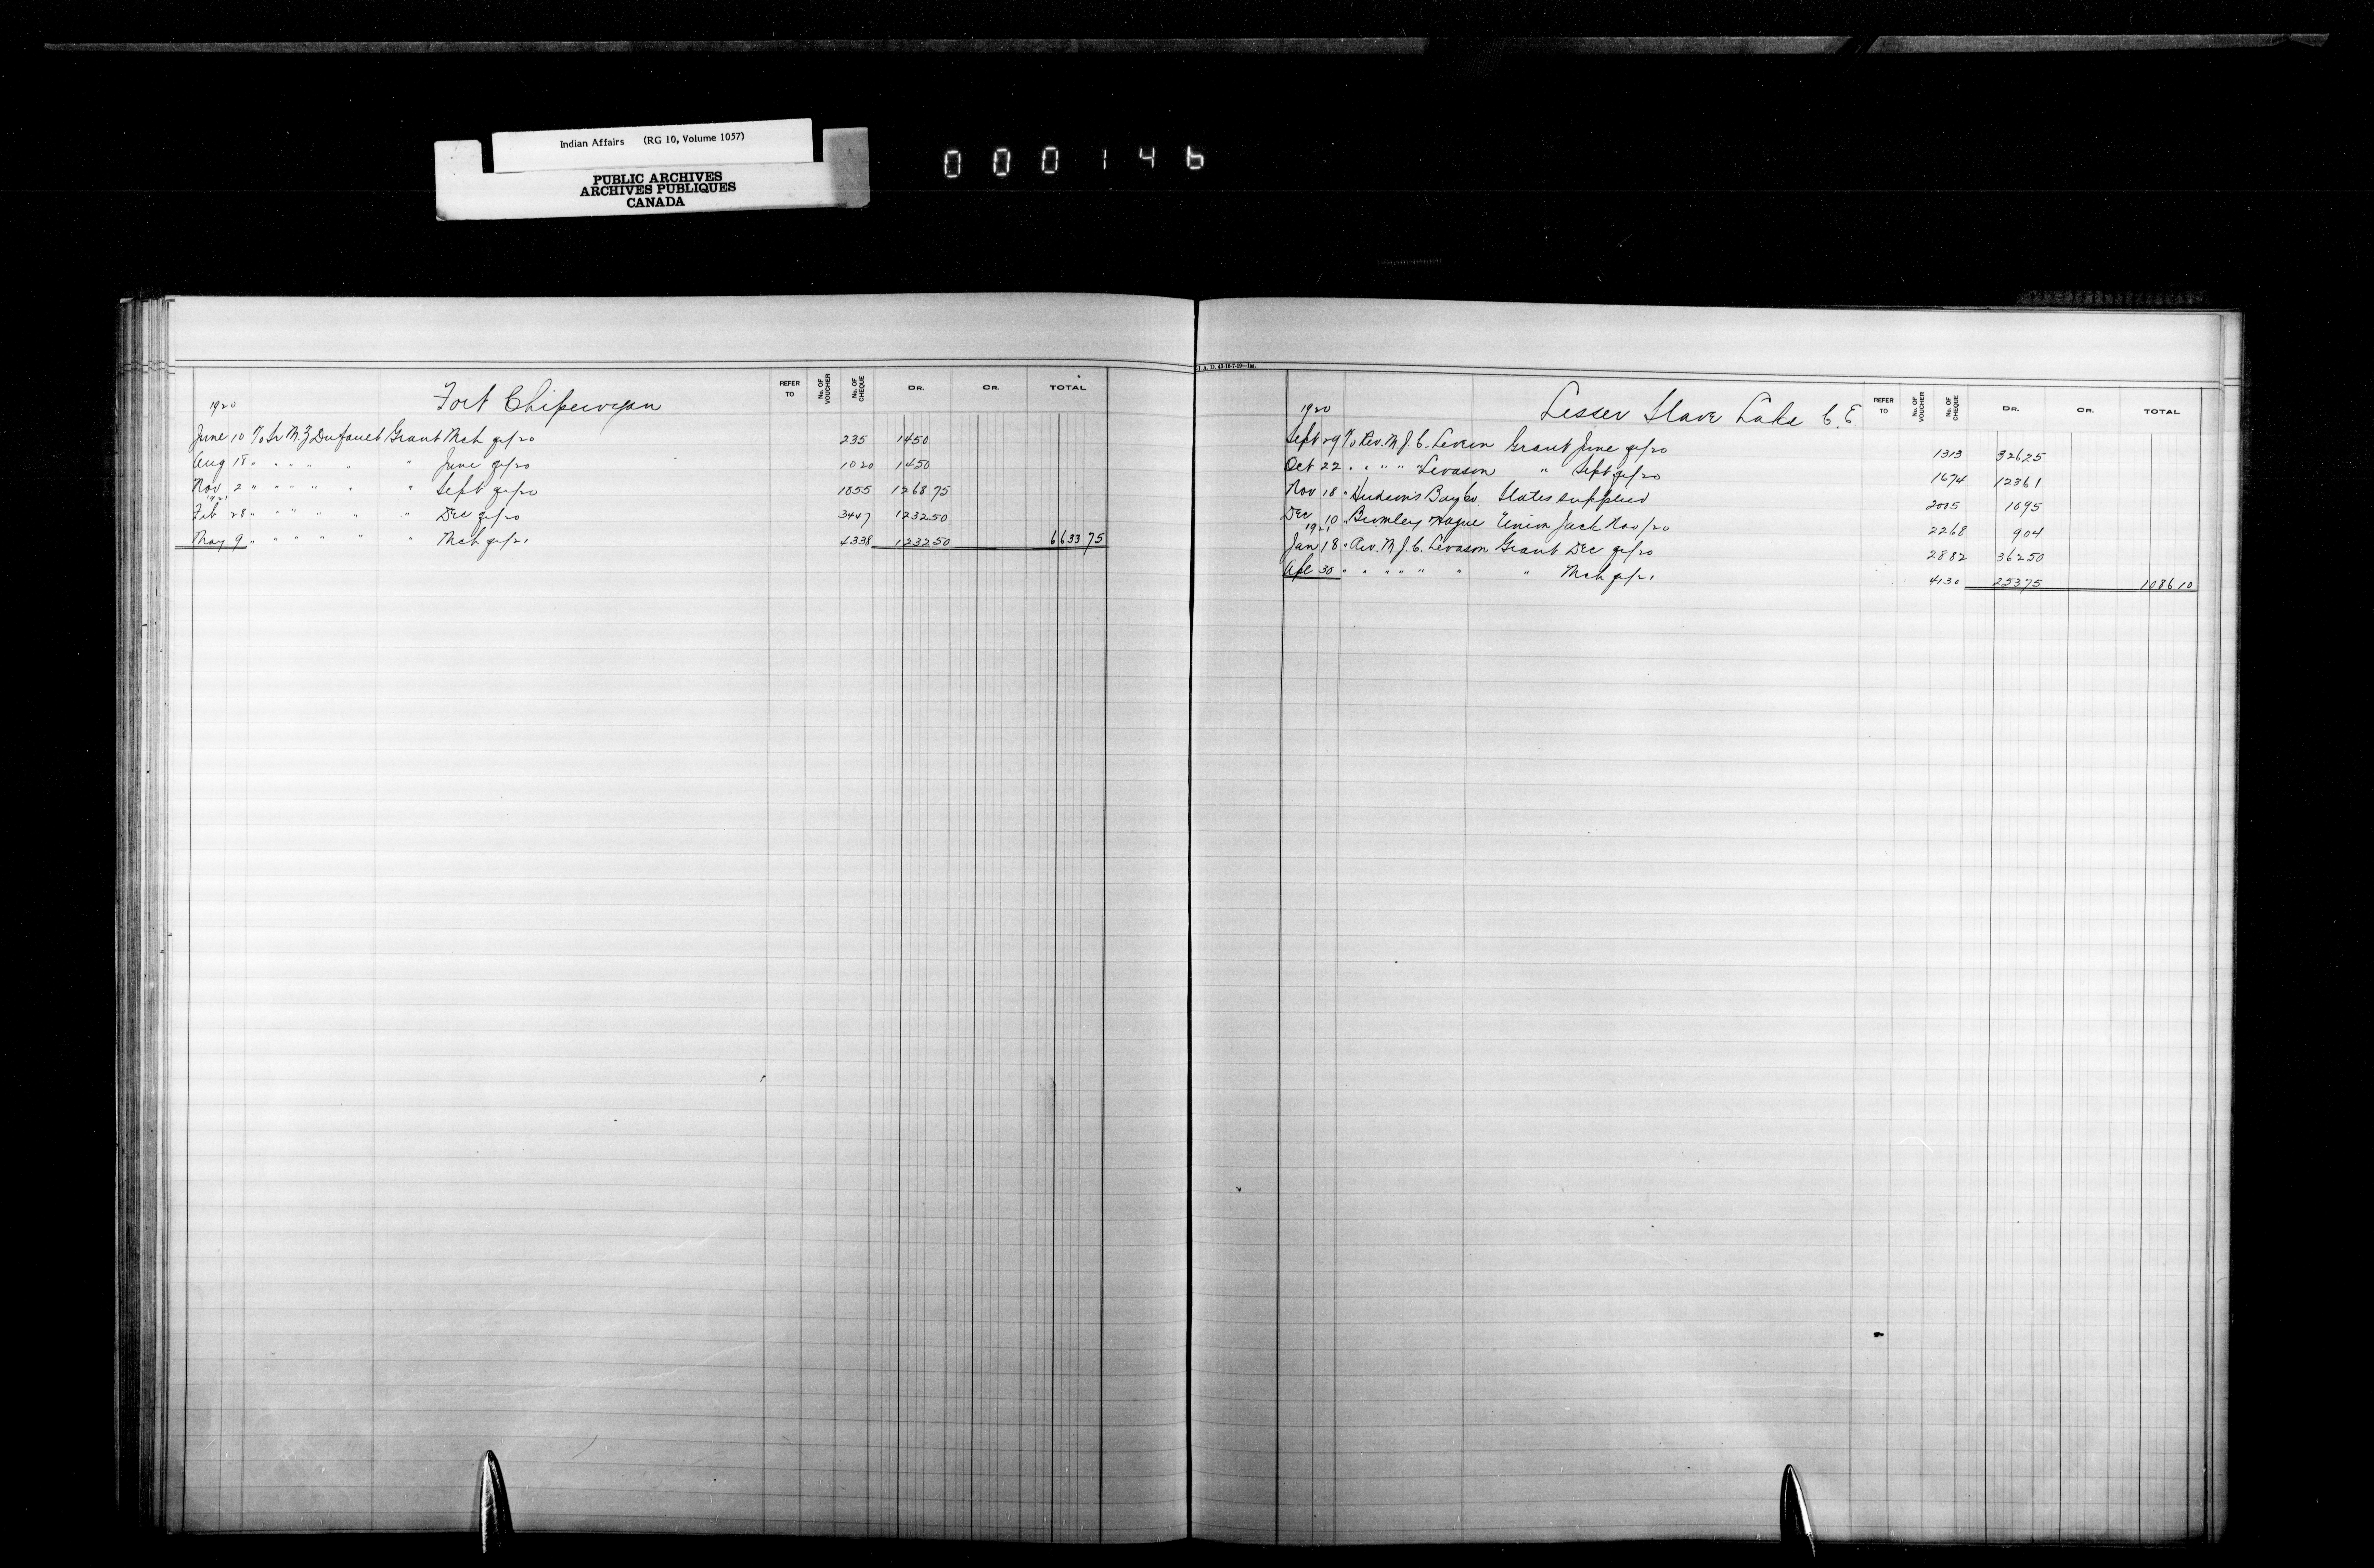 Indian Affairs (RG 10, Volume 1057)
PUBLIC ARCHIVES
ARCHIVES PUBLIQUES
CANADA
000146
Fort Chipewyan
REFER TO No. OF VOUCHER No. OF CHEQUE DR. CR. TOTAL
1920
June 10 To Sr M. Z Dufault Grant Mch qr/20 235 1450
Aug 18 " " " " " " June qr/20 1020 1450
Nov 2 " " " " " " Sept qr/20 1855 1268 75
1921
Feb 28 " " " " " " Dec qr/20 3447 1232 50
May 9 " " " " " " Mch qr/21 4338 1232 50 6633 75
I. A. D. 43-16-7-19—1M.
Lesser Slave Lake C. E.
REFER TO No. OF VOUCHER No. OF CHEQUE DR. CR. TOTAL
1920
Sept 29 To Rev. M. J. C. Grant June qr/20 1313 326 25
Oct 22 " " " " " Levason " Sept qr/20 1674 123 61
Nov 18 " Hudson's Bay Co. Slates supplied 2005 10 95
Dec 10 " Bromley Hague Union Jack Nov/20 2268 9 04
1921
Jan 18 " Rev. M. J. C. Levason Grant Dec qr/20 2882 362 50
Apl 30 " " " " " " " Mch qr/21 4130 253 75 1086 10